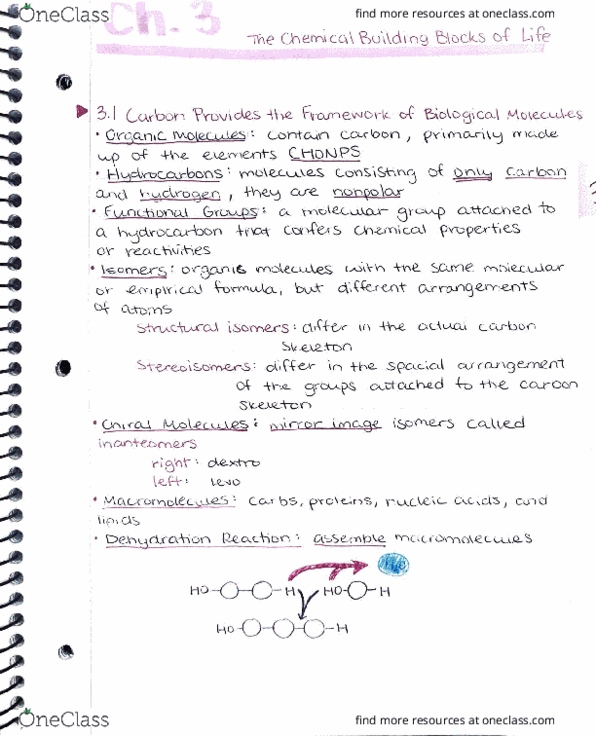 OneClass
find more resources at oneclass.com
Ch. 3
The Chemical Building Blocks of Life
3.1 Carbon Provides the Framework of Biological Molecules
• Organic molecules: contain carbon, primarily made
up of the elements CHONPS
• Hydrocarbons: molecules consisting of only carbon
and hydrogen, they are nonpolar
• Functional Groups: a molecular group attached to
a hydrocarbon that confers chemical properties
or reactivities
• Isomers: organic molecules with the same molecular
or empirical formula, but different arrangements
of atoms
Structural isomers: differ in the actual carbon
skeleton
Stereoisomers: differ in the spacial arrangement
of the groups attached to the carbon
skeleton
• Chiral Molecules: mirror image isomers called
inanteomers
right: dextro
left: levo
• Macromolecules: carbs, proteins, nucleic acids, and
lipids
• Dehydration Reaction: assemble macromolecules
H₂O
HO H HO H
HO H
OneClass
find more resources at oneclass.com